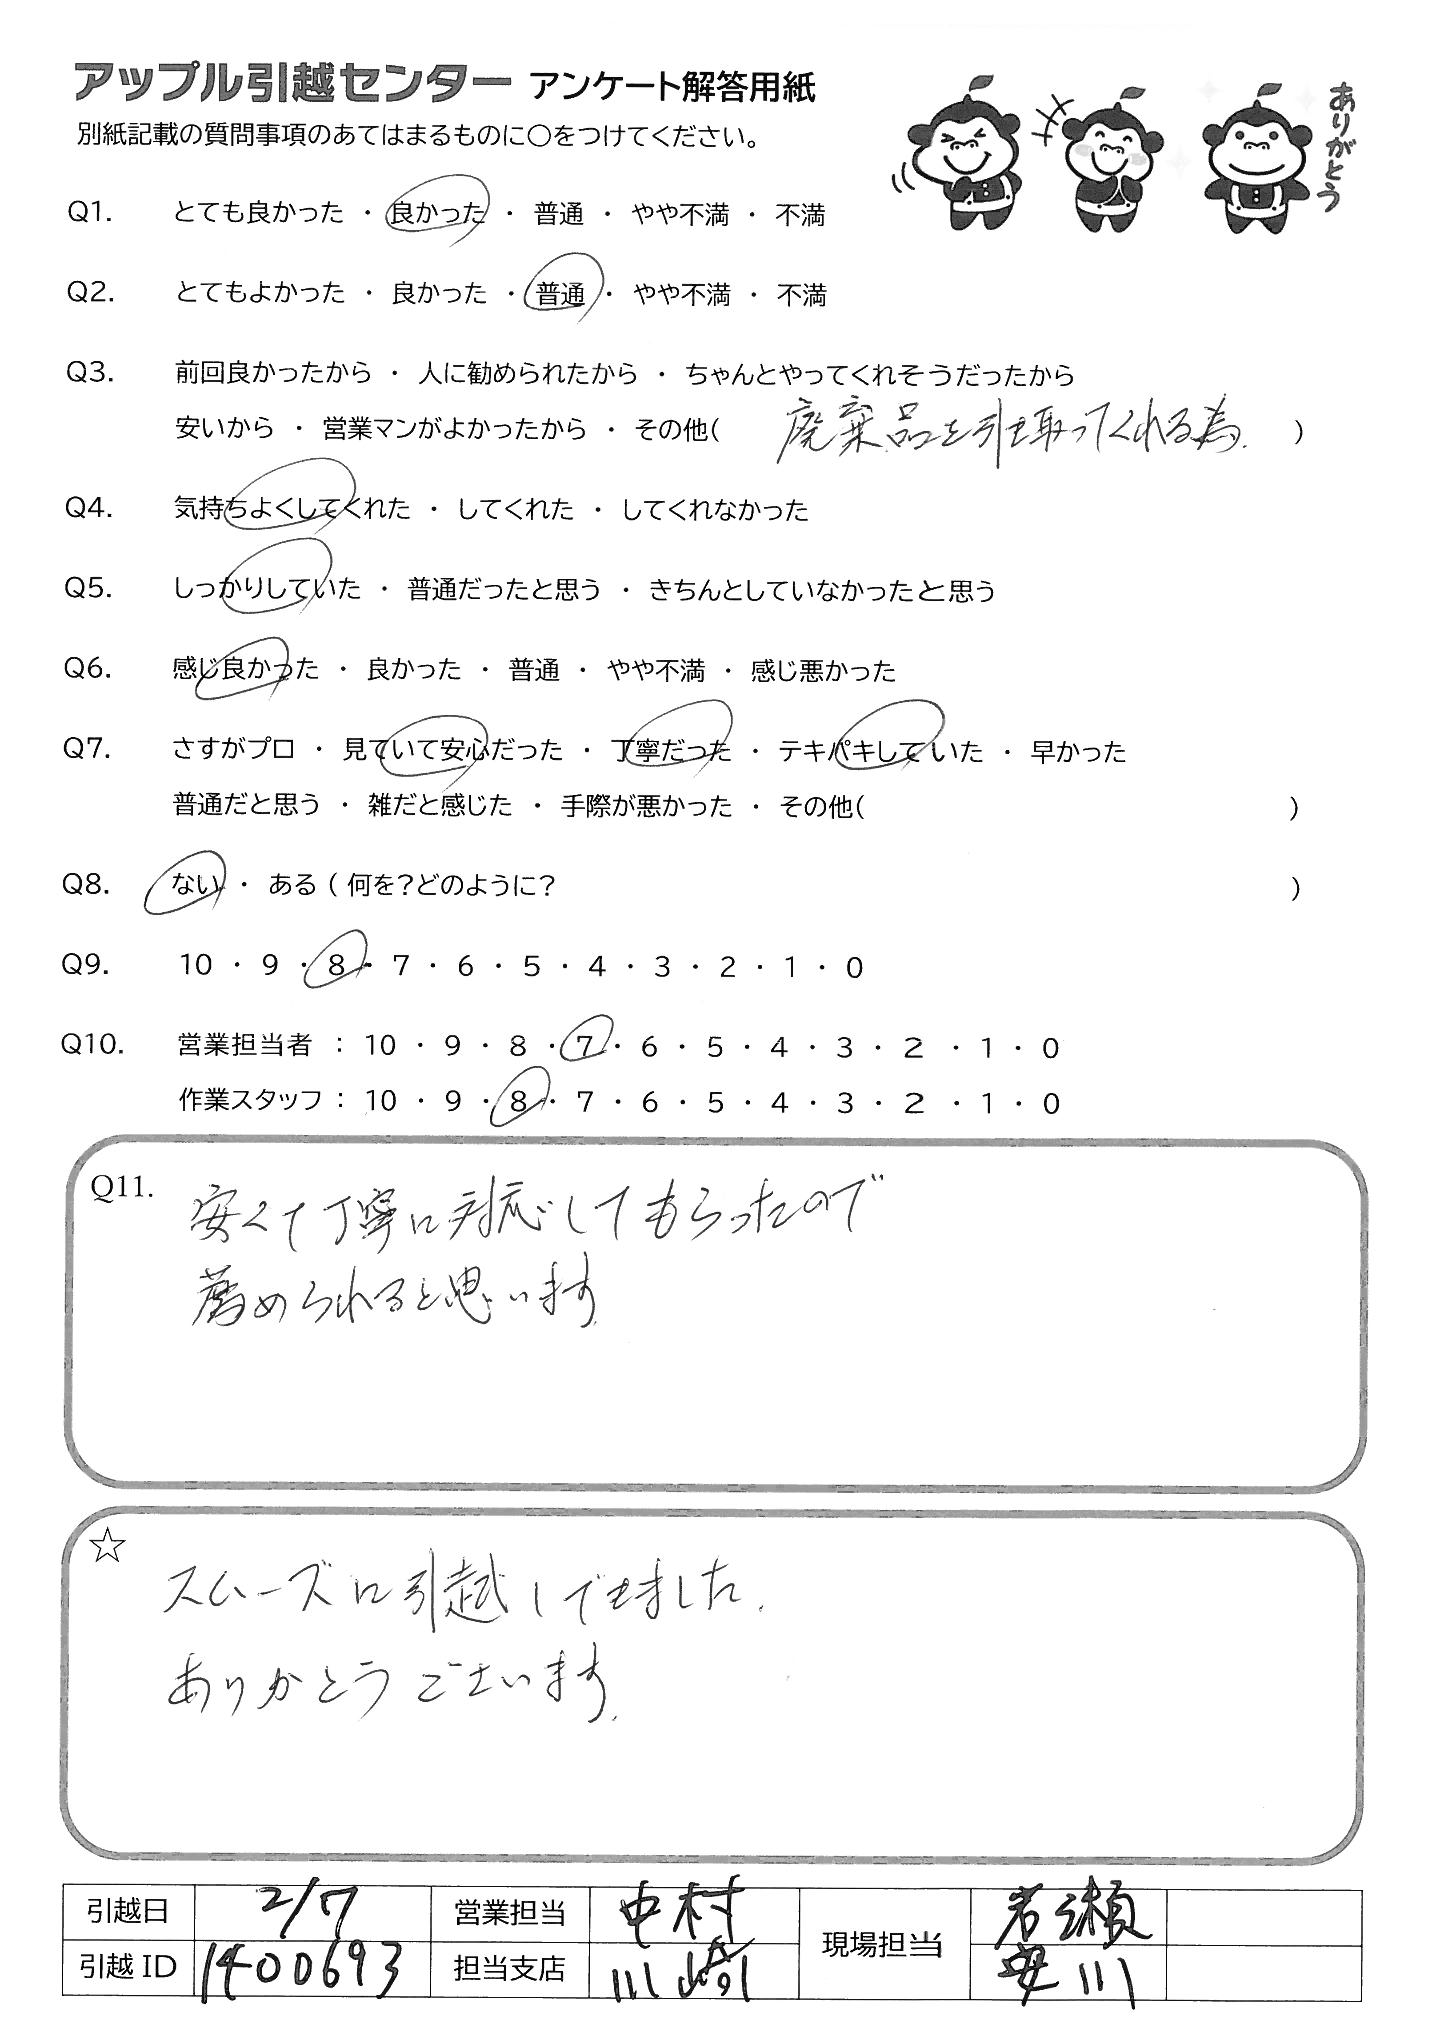 アップル引越センター アンケート解答用紙
ありがとう
別紙記載の質問事項のあてはまるものに○をつけてください。
Q1. とても良かった ・ 良かった ・ 普通 ・ やや不満 ・ 不満
Q2. とてもよかった ・ 良かった ・ 普通 ・ やや不満 ・ 不満
Q3. 前回良かったから ・ 人に勧められたから ・ ちゃんとやってくれそうだったから
安いから ・ 営業マンがよかったから ・ その他( 廃棄品を引き取ってくれる為. )
Q4. 気持ちよくしてくれた ・ してくれた ・ してくれなかった
Q5. しっかりしていた ・ 普通だったと思う ・ きちんとしていなかったと思う
Q6. 感じ良かった ・ 良かった ・ 普通 ・ やや不満 ・ 感じ悪かった
Q7. さすがプロ ・ 見ていて安心だった ・ 丁寧だった ・ テキパキしていた ・ 早かった
普通だと思う ・ 雑だと感じた ・ 手際が悪かった ・ その他( )
Q8. ない ・ ある ( 何を?どのように? )
Q9. 10 ・ 9 ・ 8 ・ 7 ・ 6 ・ 5 ・ 4 ・ 3 ・ 2 ・ 1 ・ 0
Q10. 営業担当者 : 10 ・ 9 ・ 8 ・ 7 ・ 6 ・ 5 ・ 4 ・ 3 ・ 2 ・ 1 ・ 0
作業スタッフ : 10 ・ 9 ・ 8 ・ 7 ・ 6 ・ 5 ・ 4 ・ 3 ・ 2 ・ 1 ・ 0
Q11. 安くて丁寧に対応してもらったので
薦められると思います.
☆
スムーズに引越しできました.
ありがとうございます.
引越日 2/7 営業担当 中村 現場担当 岩瀬
引越ID 1400693 担当支店 川崎 安川